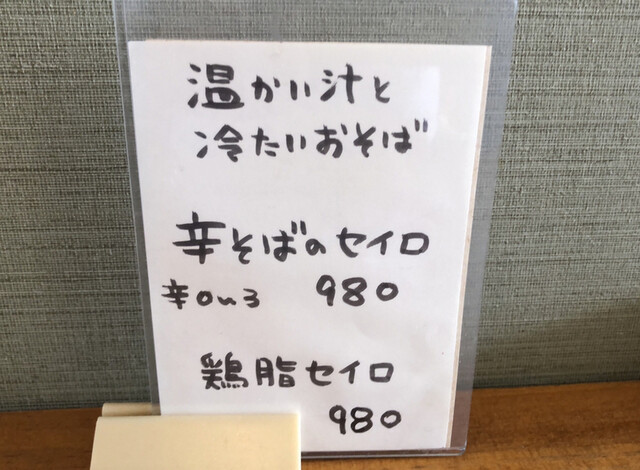 温かい汁と
冷たいおそば
辛そばのセイロ
辛0〜3 980
鶏脂セイロ
980